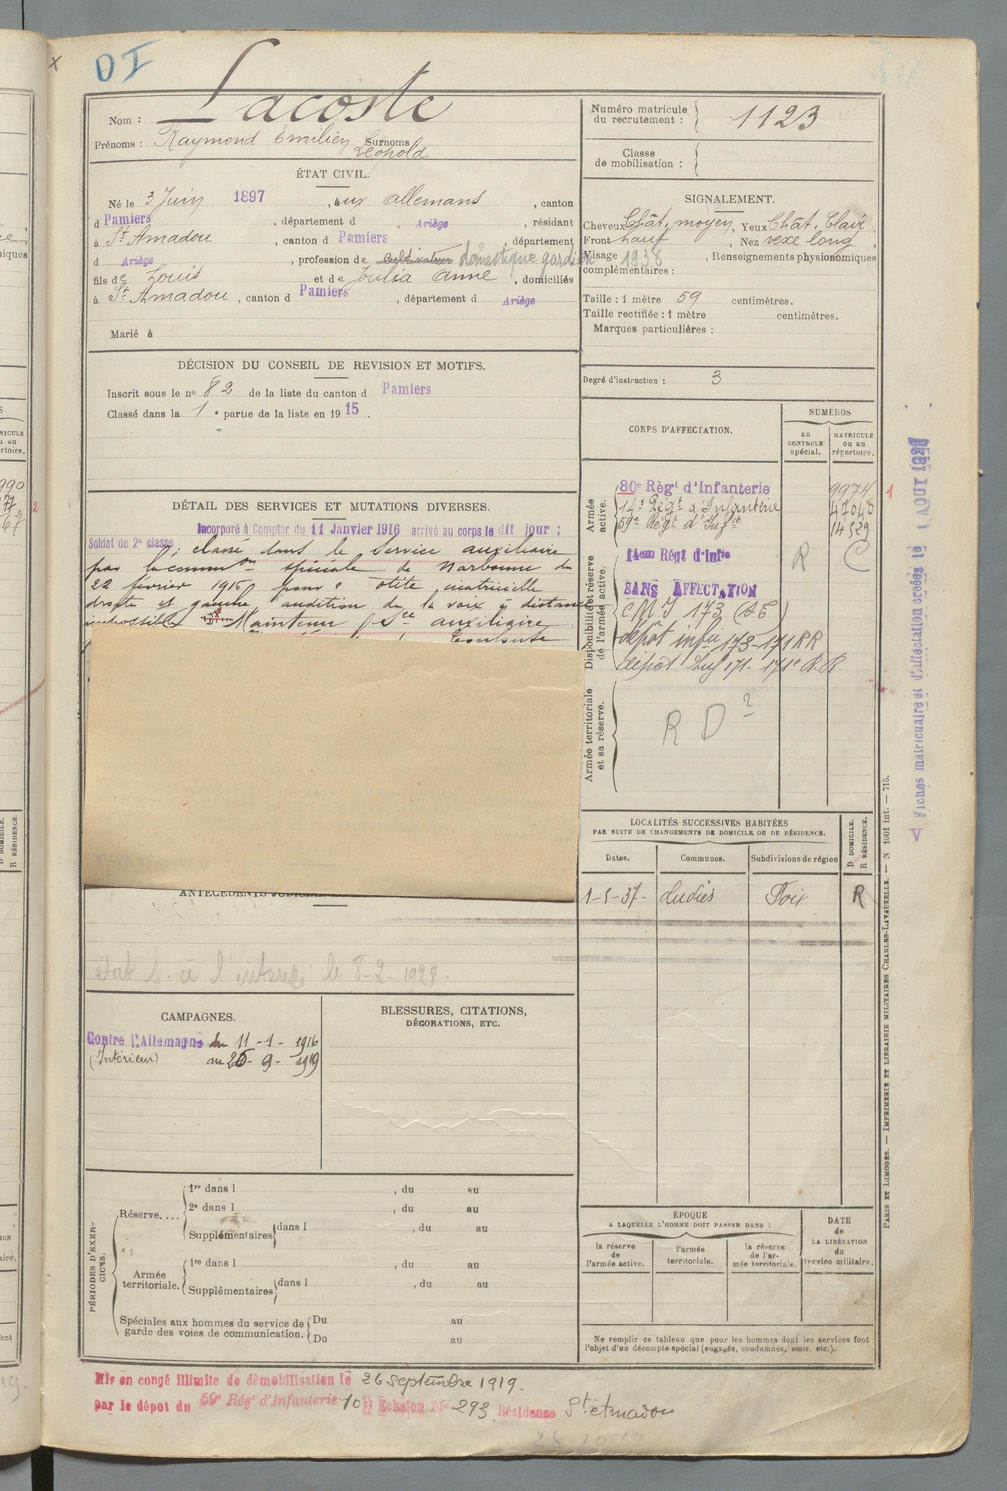 DI
Nom : Lacoste
Prénoms : Raymond Emilien Surnoms Léopold
ÉTAT CIVIL.
Né le 3 Juin 1897, aux allemans, canton
d Pamiers, département d Ariège, résidant
à St Amadou, canton d Pamiers, département
d Ariège, profession de Cultivateur domestique gardien
fils de Louis et de Julia Anne, domiciliés
à St Amadou, canton d Pamiers, département d Ariège
Marié à
DÉCISION DU CONSEIL DE REVISION ET MOTIFS.
Inscrit sous le no 82 de la liste du canton d Pamiers
Classé dans la 1e partie de la liste en 1915.
DÉTAIL DES SERVICES ET MUTATIONS DIVERSES.
Incorporé à Compter du 11 Janvier 1916 arrivé au corps le dit jour ;
Soldat de 2e classe ; classé dans le Service auxiliaire
par la common spéciale de Narbonne du
22 février 1916 pour : otite
droite et gauche, audition de la voix à distance
impossible Maintenu Sce auxiliaire
Toulouse
ANTÉCÉDENTS
état le 8-2-1928.
CAMPAGNES.
Contre l'Allemagne du 11-1-1916
(Intérieur) au 26-9-1919
BLESSURES, CITATIONS,
DÉCORATIONS, ETC.
PÉRIODES D'EXERCICES.
Réserve....
1re dans l , du au
2e dans l , du au
Supplémentaires dans l , du au
Armée territoriale.
1re dans l , du au
Supplémentaires dans l , du au
Spéciales aux hommes du service de garde des voies de communication.
Du au
Du au
Mis en congé illimité de démobilisation le 26 septembre 1919.
par le dépôt du 59e Régt d'Infanterie 10e Echelon No 293 Résidence St Amadou
Numéro matricule
du recrutement : 1123
Classe
de mobilisation :
SIGNALEMENT.
Cheveux Chât. moyen, Yeux Chât. Clair
Front haut, Nez vexe long,
Visage 1938, Renseignements physionomiques
complémentaires :
Taille : 1 mètre 59 centimètres.
Taille rectifiée : 1 mètre centimètres.
Marques particulières :
Degré d'instruction : 3
CORPS D'AFFECTATION.
NUMÉROS
AU CONTROLE spécial.
MATRICULE ou au répertoire.
Armée active.
80e Régt d'Infanterie 9974
14e Régt d'Infanterie 47040
59e Régt d'Infie 14529
Disponibilité et réserve de l'armée active.
14em Régt d'Infie R C
SANS AFFECTATION
CMI 173 (AE)
dépôt infie 173-171 RR
dépôt Inf 171-171e R.R.
Armée territoriale et sa réserve.
R D 2
LOCALITÉS SUCCESSIVES HABITÉES
PAR SUITE DE CHANGEMENTS DE DOMICILE OU DE RÉSIDENCE.
Dates. Communes. Subdivisions de région
D DOMICILE.
R RÉSIDENCE.
1-5-37- Ludiès Foix R
ÉPOQUE
A LAQUELLE L'HOMME DOIT PASSER DANS :
la réserve de l'armée active.
l'armée territoriale.
la réserve de l'armée territoriale.
DATE de LA LIBÉRATION du service militaire.
Ne remplir ce tableau que pour les hommes dont les services font
l'objet d'un décompte spécial (engagés, condamnés, omis, etc.).
PARIS ET LIMOGES. — IMPRIMERIE ET LIBRAIRIE MILITAIRES CHARLES-LAVAUZELLE. — N 1001 int. — 715.
Fiches matriculaire et d'affectation créées le 1 AOUT